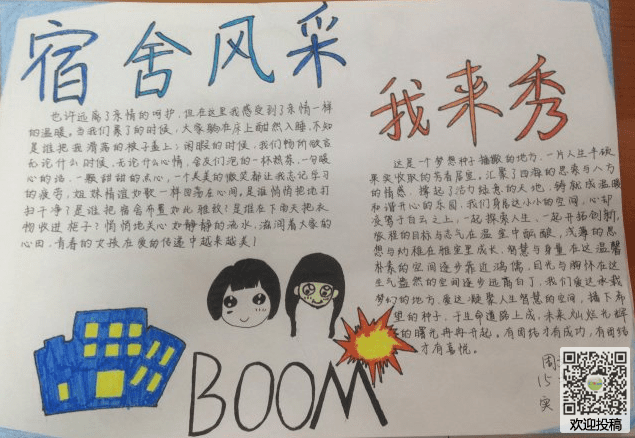 宿舍风采
我来秀
也许远离了亲情的呵护,但在这里我感受到了亲情一样
的温暖。当我们累了的时候,大家躺在床上酣然入睡,不知
是谁把我滑落的被子盖上;闲暇的时候,我们畅所欲言
无论什么时候,无论什么心情,舍友们泡的一杯热茶,一句暖
心的话,一颗甜甜的点心,一个美美的微笑都让我忘记学习
的疲劳,姐妹情谊如歌一样回荡在心间,是谁悄悄把地打
扫干净了?是谁把宿舍布置如此雅致?是谁在下雨天把衣
物收进柜子?悄悄地关心如静静的流水,滋润着大家的
心田,青春的女孩在爱的传递中越来越美!
这是个梦想种子播撒的地方,一片人生丰硕
果实收取的秀着居室,汇聚了四海的思素与八方
的情感,撑起了活力绿意的天地,铸就成温暖
和谐开心的乐园,我们身居这小小的空间,心却
一起探索人生,一起开拓创新,
旅程的目标与志气在温室中酝酿,浅薄的思
想与幼稚在雅室里成长,智慧与身量在这温馨
朴素的空间逐步靠近鸿儒,目光与胸怀在这
生气盎然的空间逐步远离白丁,我们爱这承载
梦幻的地方,爱这凝聚人生智慧的空间,播下希
望的种子,于生命道路上成,未来灿烂光辉
的曙光冉冉升起。有团结才有成功,有团结
才有喜悦。
周
15
实
BOOM
欢迎投稿